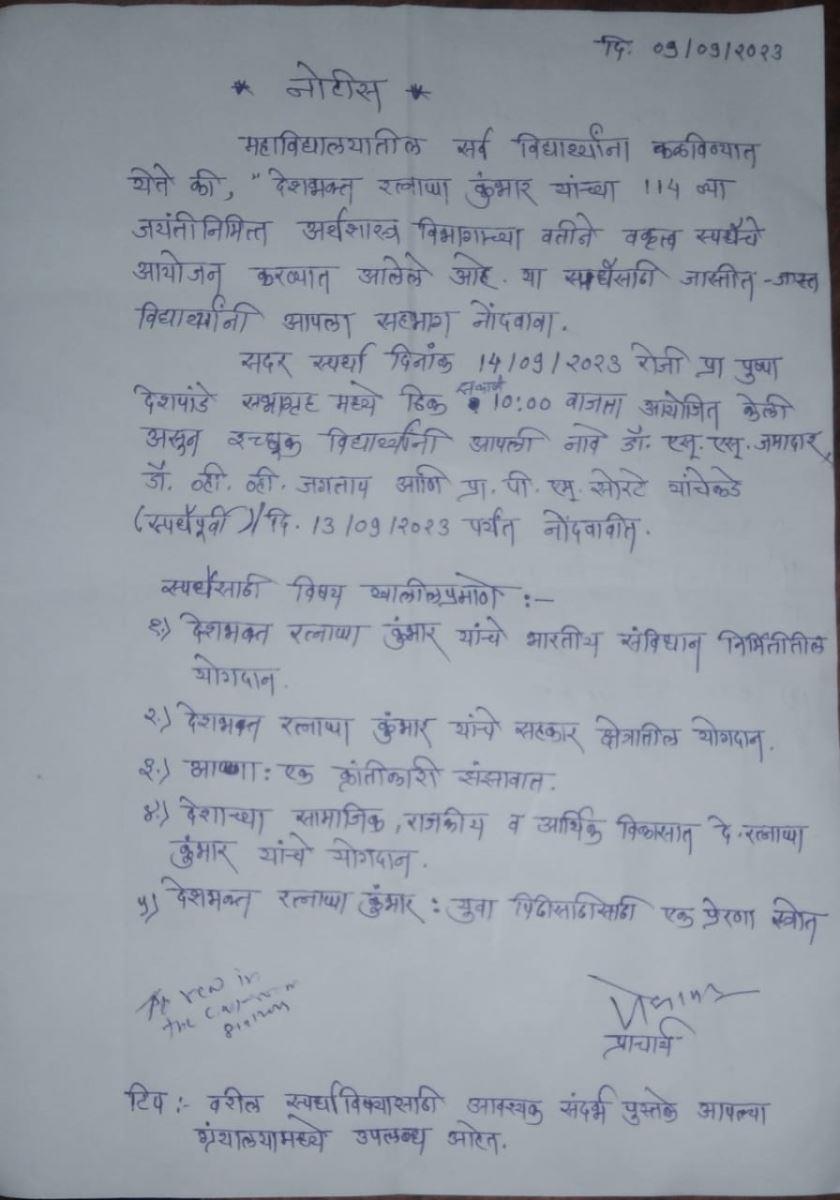 दि. ०9/०9/२०२३
* नोटीस *
महाविद्यालयातील सर्व विद्यार्थ्यांना कळविण्यात
येते की, "देशभक्त रत्नाप्पा कुंभार यांच्या 114 व्या
जयंतीनिमित्त अर्थशास्त्र विभागाच्या वतीने वक्तृत्व स्पर्धेचे
आयोजन करण्यात आलेले आहे. या स्पर्धेसाठी जास्तीत-जास्त
विद्यार्थ्यांनी आपला सहभाग नोंदवावा.
सदर स्पर्धा दिनांक 14/०9/२०२३ रोजी प्रा पुष्पा
देशपांडे सभागृह मध्ये ठिक सकाळी 10:00 वाजता आयोजित केली
असून इच्छूक विद्यार्थ्यांनी आपली नावे डॉ. एस्. एस्. जमादार,
डॉ. व्ही. व्ही. जगताप आणि प्रा. पी. एम्. सोरटे यांचेकडे
(स्पर्धेपूर्वी) दि. 13/०9/२०२३ पर्यंत नोंदवावीत.
स्पर्धेसाठी विषय खालीलप्रमाणे :-
१.) देशभक्त रत्नाप्पा कुंभार यांचे भारतीय संविधान निर्मितीतील
योगदान.
२.) देशभक्त रत्नाप्पा कुंभार यांचे सहकार क्षेत्रातील योगदान.
३.) आण्णा : एक क्रांतीकारी झंझावात.
४.) देशाच्या सामाजिक, राजकीय व आर्थिक विकासात दे. रत्नाप्पा
कुंभार यांचे योगदान.
५) देशभक्त रत्नाप्पा कुंभार : युवा पिढीसाठीसाठी एक प्रेरणा स्त्रोत
प्राचार्य
टिप :- वरील स्पर्धाविषयासाठी आवश्यक संदर्भ पुस्तके आपल्या
ग्रंथालयामध्ये उपलब्ध आहेत.